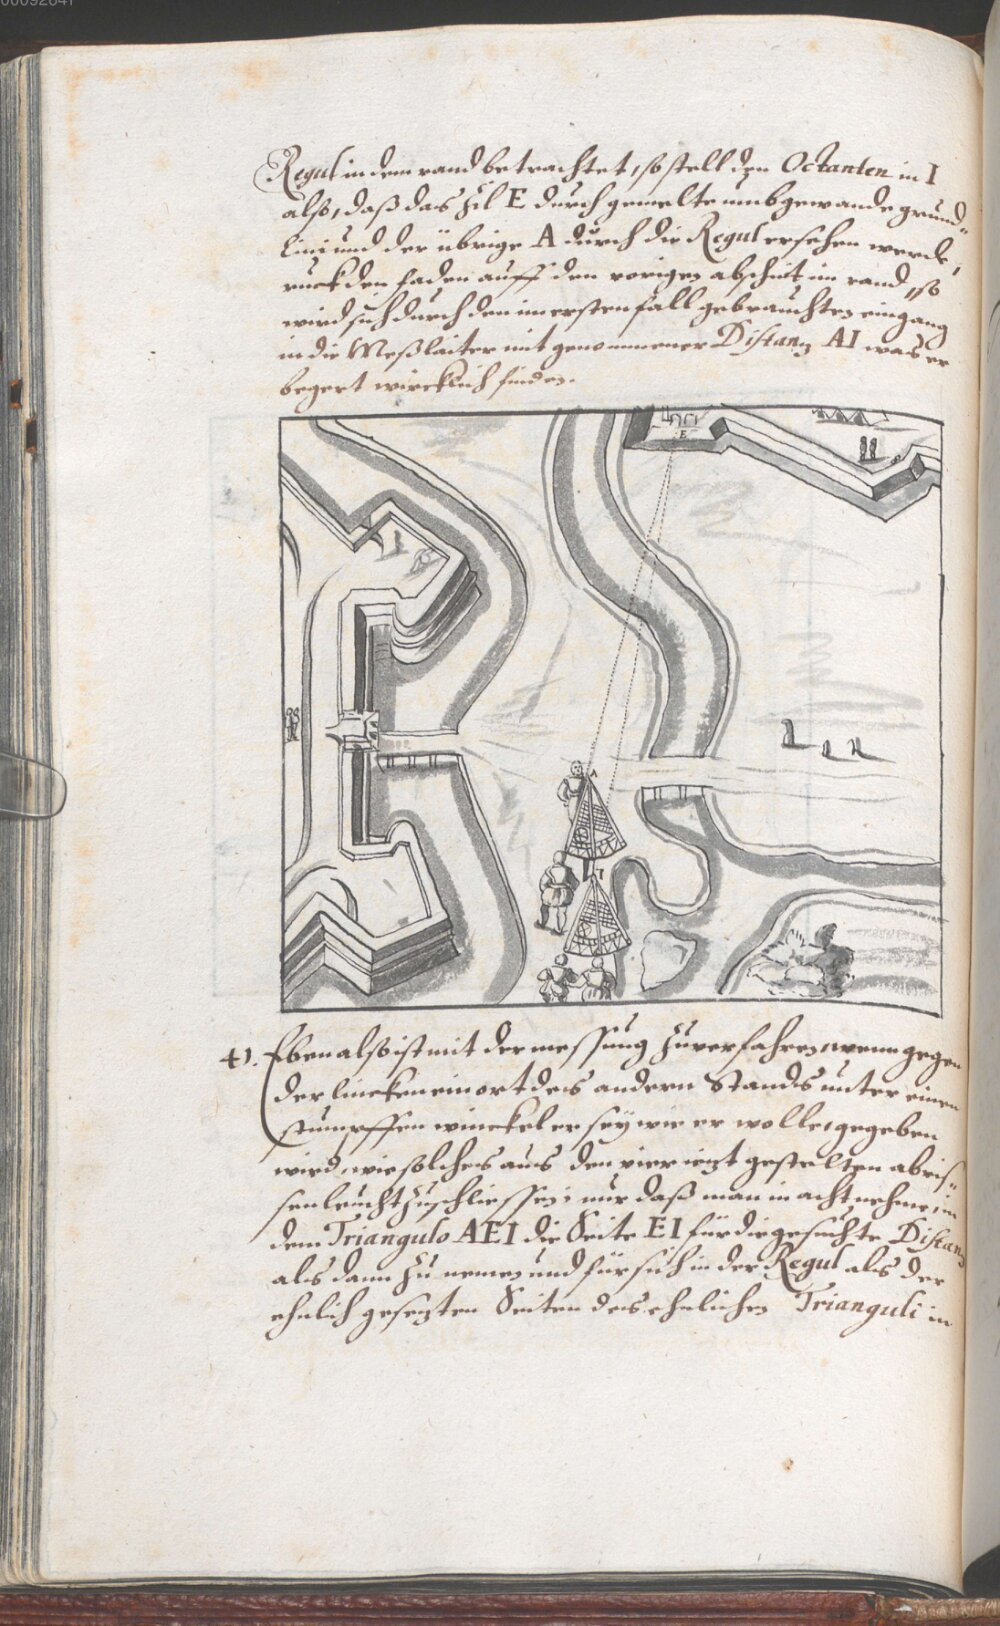 00092641
Regul in dem rand betrachtet, so stell den Octanten in I
also, daß das Zil E durch gemelte umbgewande grund=
lini und der übrige A durch die Regul ersehen werde,
ruck den faden auff den vorigen abschnit im rand, so
wird sich durch den im ersten fall gebrauchten eingang
in die Meßlaiter mit genommener Distanz AI was er
begert wircklich finden.
E
A
I
4). Eben also ist mit der messung zuverfahren, wenn gegen
der lincken ein ort des andern Stands unter einen
stumpffen winckel er sey wie er wolle, gegeben
wird, wie solches aus den vier iezt gestelten abris=
sen leucht zuschliessen; nur daß man in acht neheme, in
dem Triangulo AEI die Seite EI für die gesuchte Distanz
als dann zu nemen und für sich in der Regul als der
ehnlich gesezten Seiten des ehnlichen Trianguli in